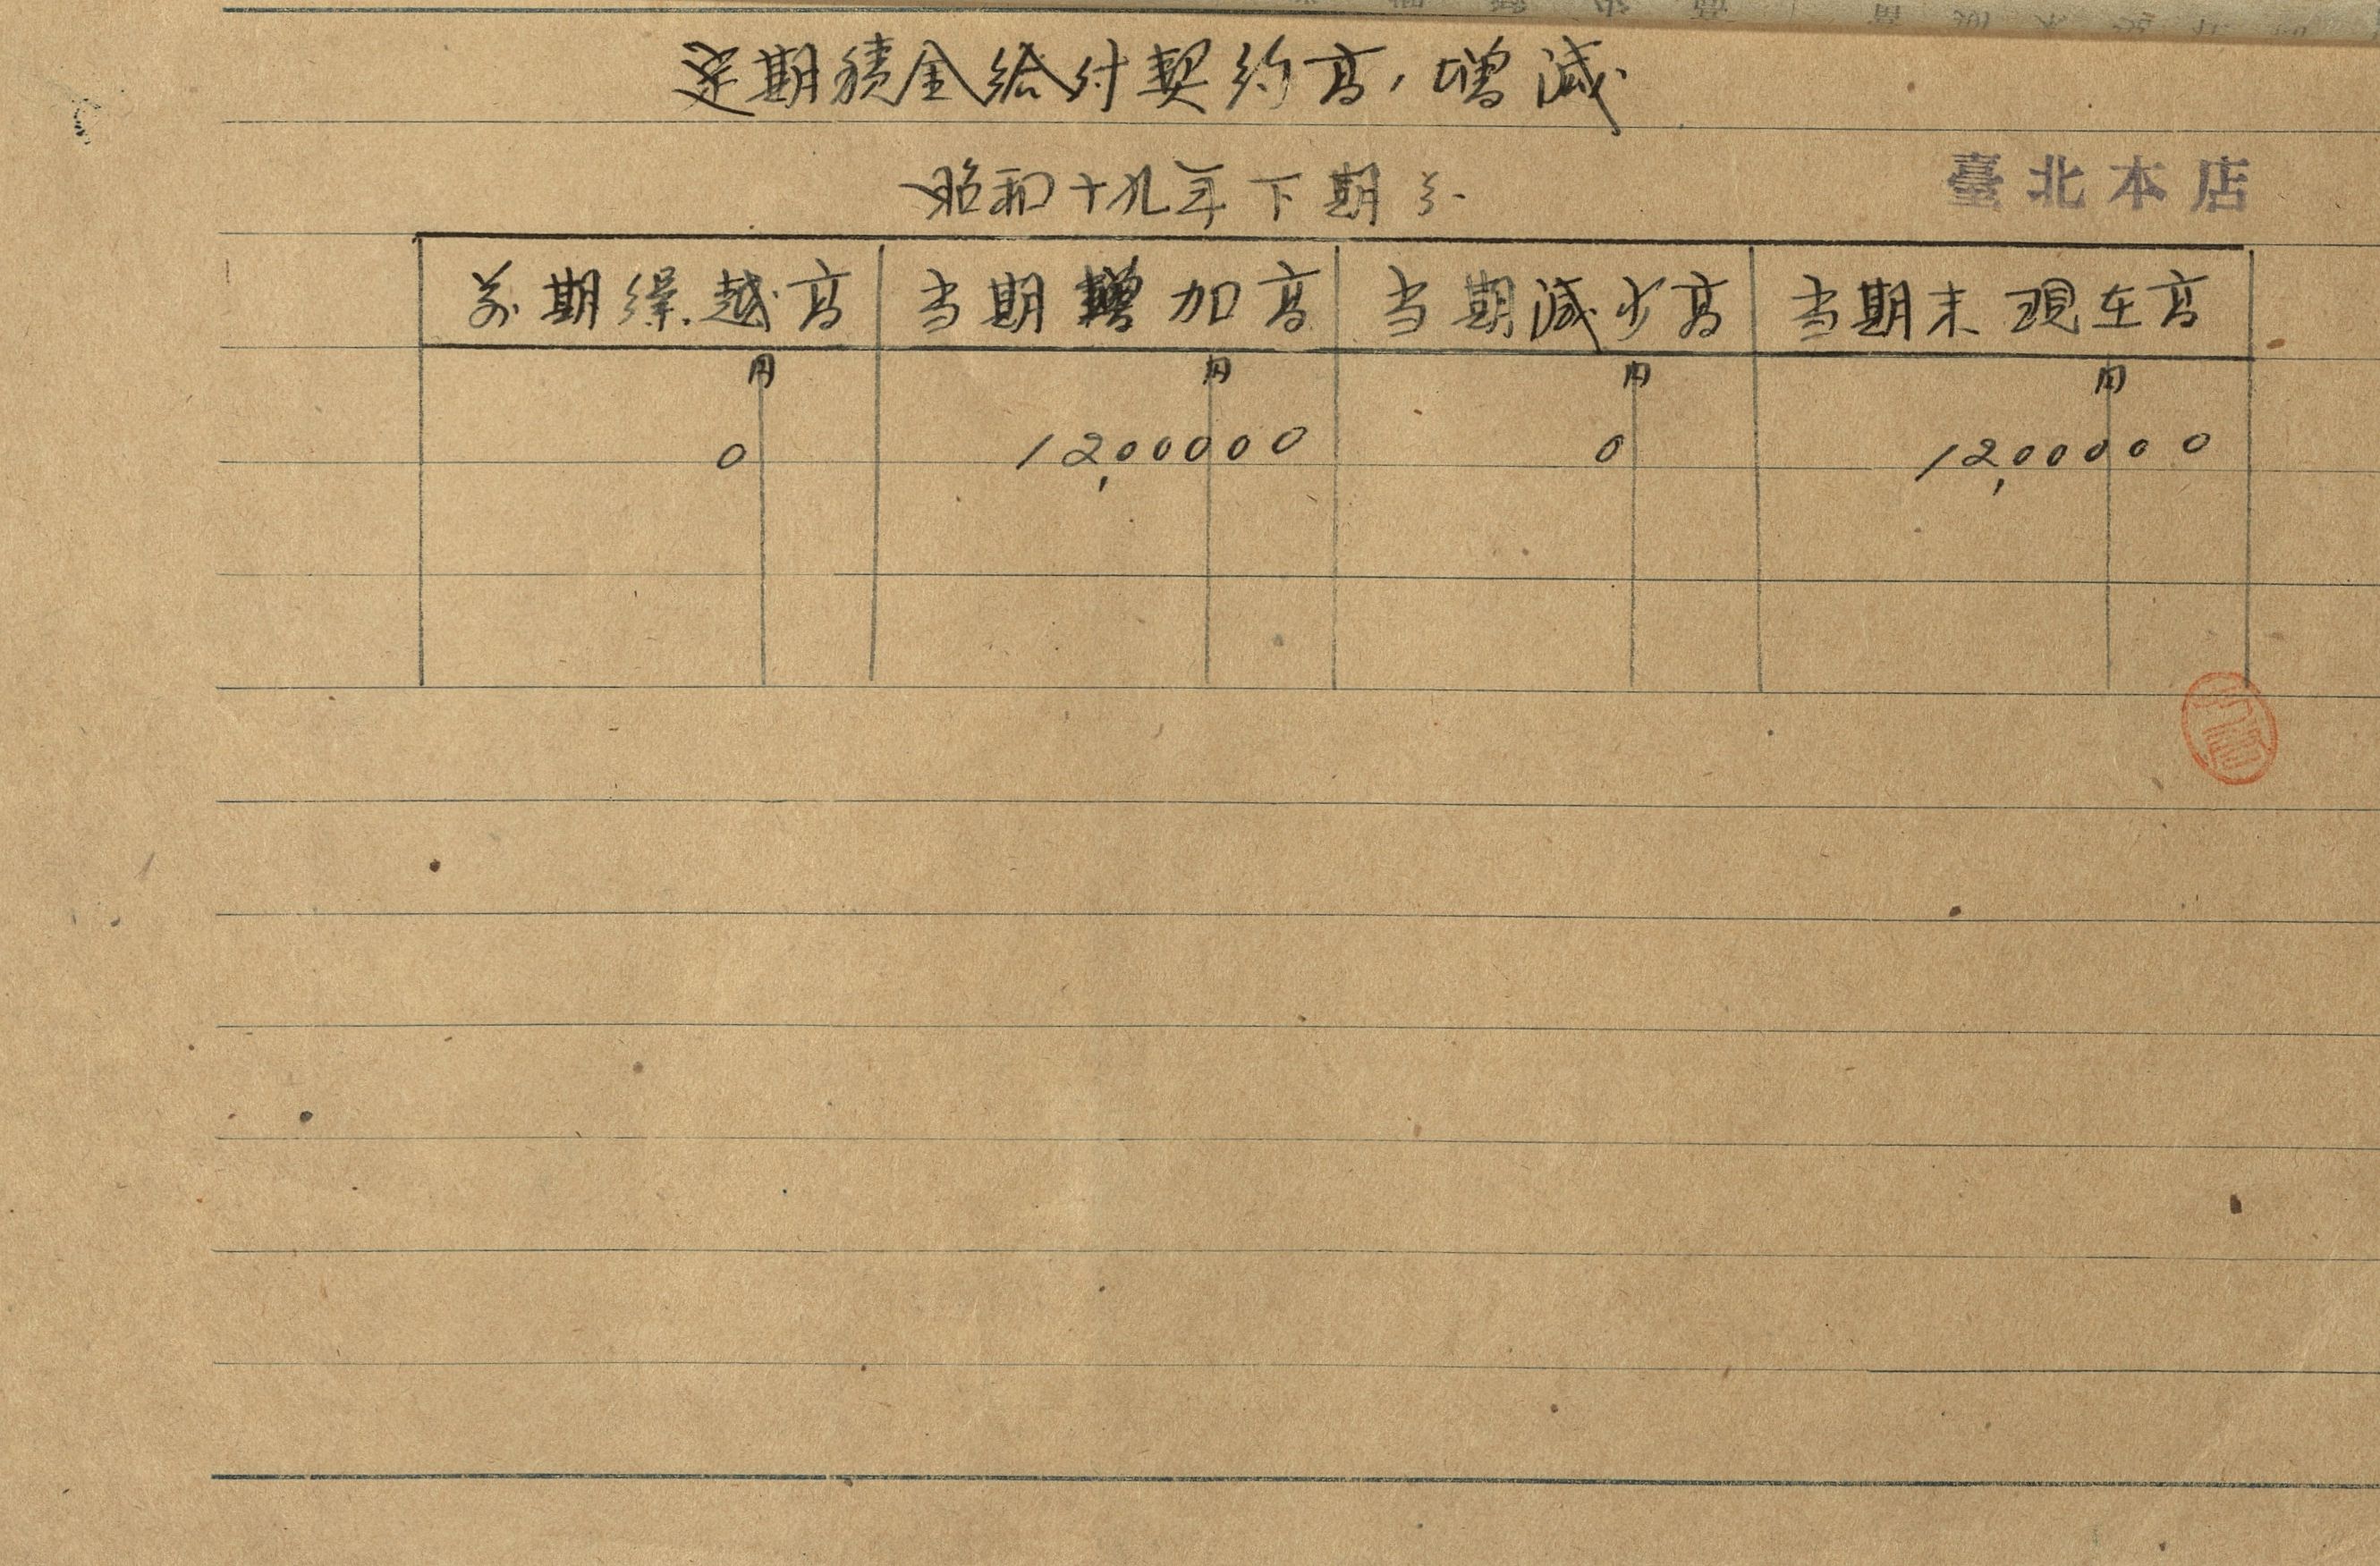 定期積金給付契約高ノ増減
昭和十九年下期分
臺北本店
前期繰越高 当期増加高 当期減少高 当期末現在高
円 円 円 円
0 12,00000 0 12,00000